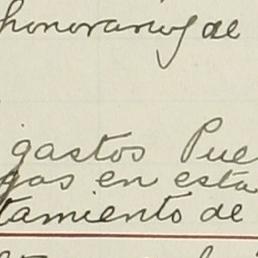 honorarios de
gastos Pue
gas en esta
tamiento de